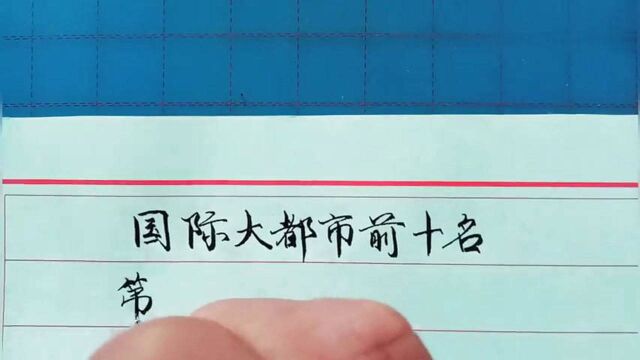 国际大都市前十名
第